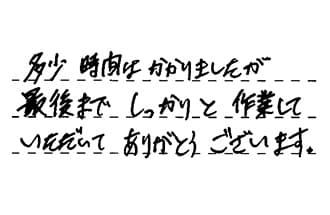 多少 時間はかかりましたが
最後まで しっかりと 作業して
いただいて ありがとう ございます。